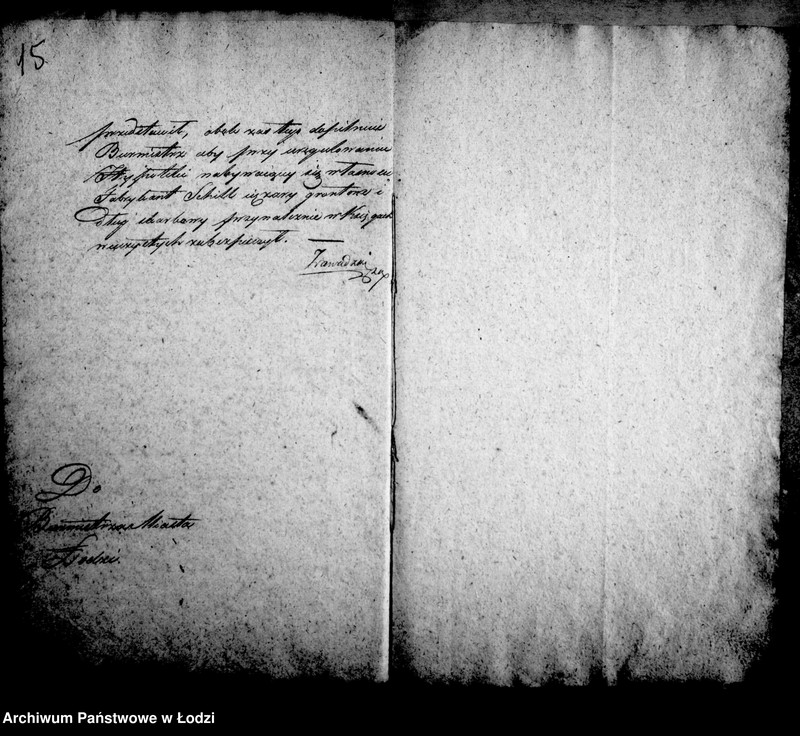 15
przedstawił, obok zaś tego dopilnuie
Burmistrz aby przy uregulowaniu
Hypoteki nabywaiący się własność
Fabrykant Schill ciężary gruntowe i
dług skarbowy przynależnie w Księgach
wieczystych zabezpieczył. —
Zawadzki
Do
Burmistrza Miasta
Łodzi.
Archiwum Państwowe w Łodzi